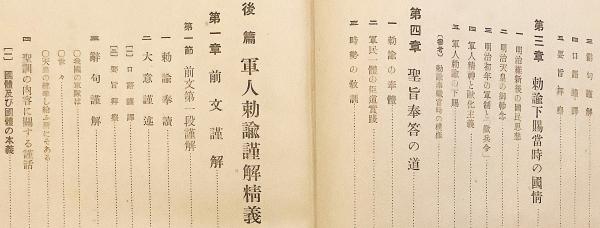 三 辭句謹解
四 口語謹譯
五 要旨釋義
第三章 勅諭下賜當時の國情
一 明治維新後の國民思想
二 明治天皇の御軫念
三 明治初年の軍制と「徵兵令」
四 軍人精神と歐化主義
五 軍人勅諭の下賜
(參考) 勅諭奉戴當時の模樣
第四章 聖旨奉答の道
一 勅諭の奉體
二 軍民一體の臣道實踐
三 時勢の敎訓
後篇 軍人勅諭謹解精義
第一章 前文謹解
第一節 前文第一段謹解
一 勅諭奉讀
二 大意謹述
[一] 口語謹譯
[二] 要旨釋義
三 辭句謹解
○我國の軍隊は
○世々
○天皇の統率し給ふ所にそある
四 聖訓の內容に關する謹話
[一] 國體及び國體の本義